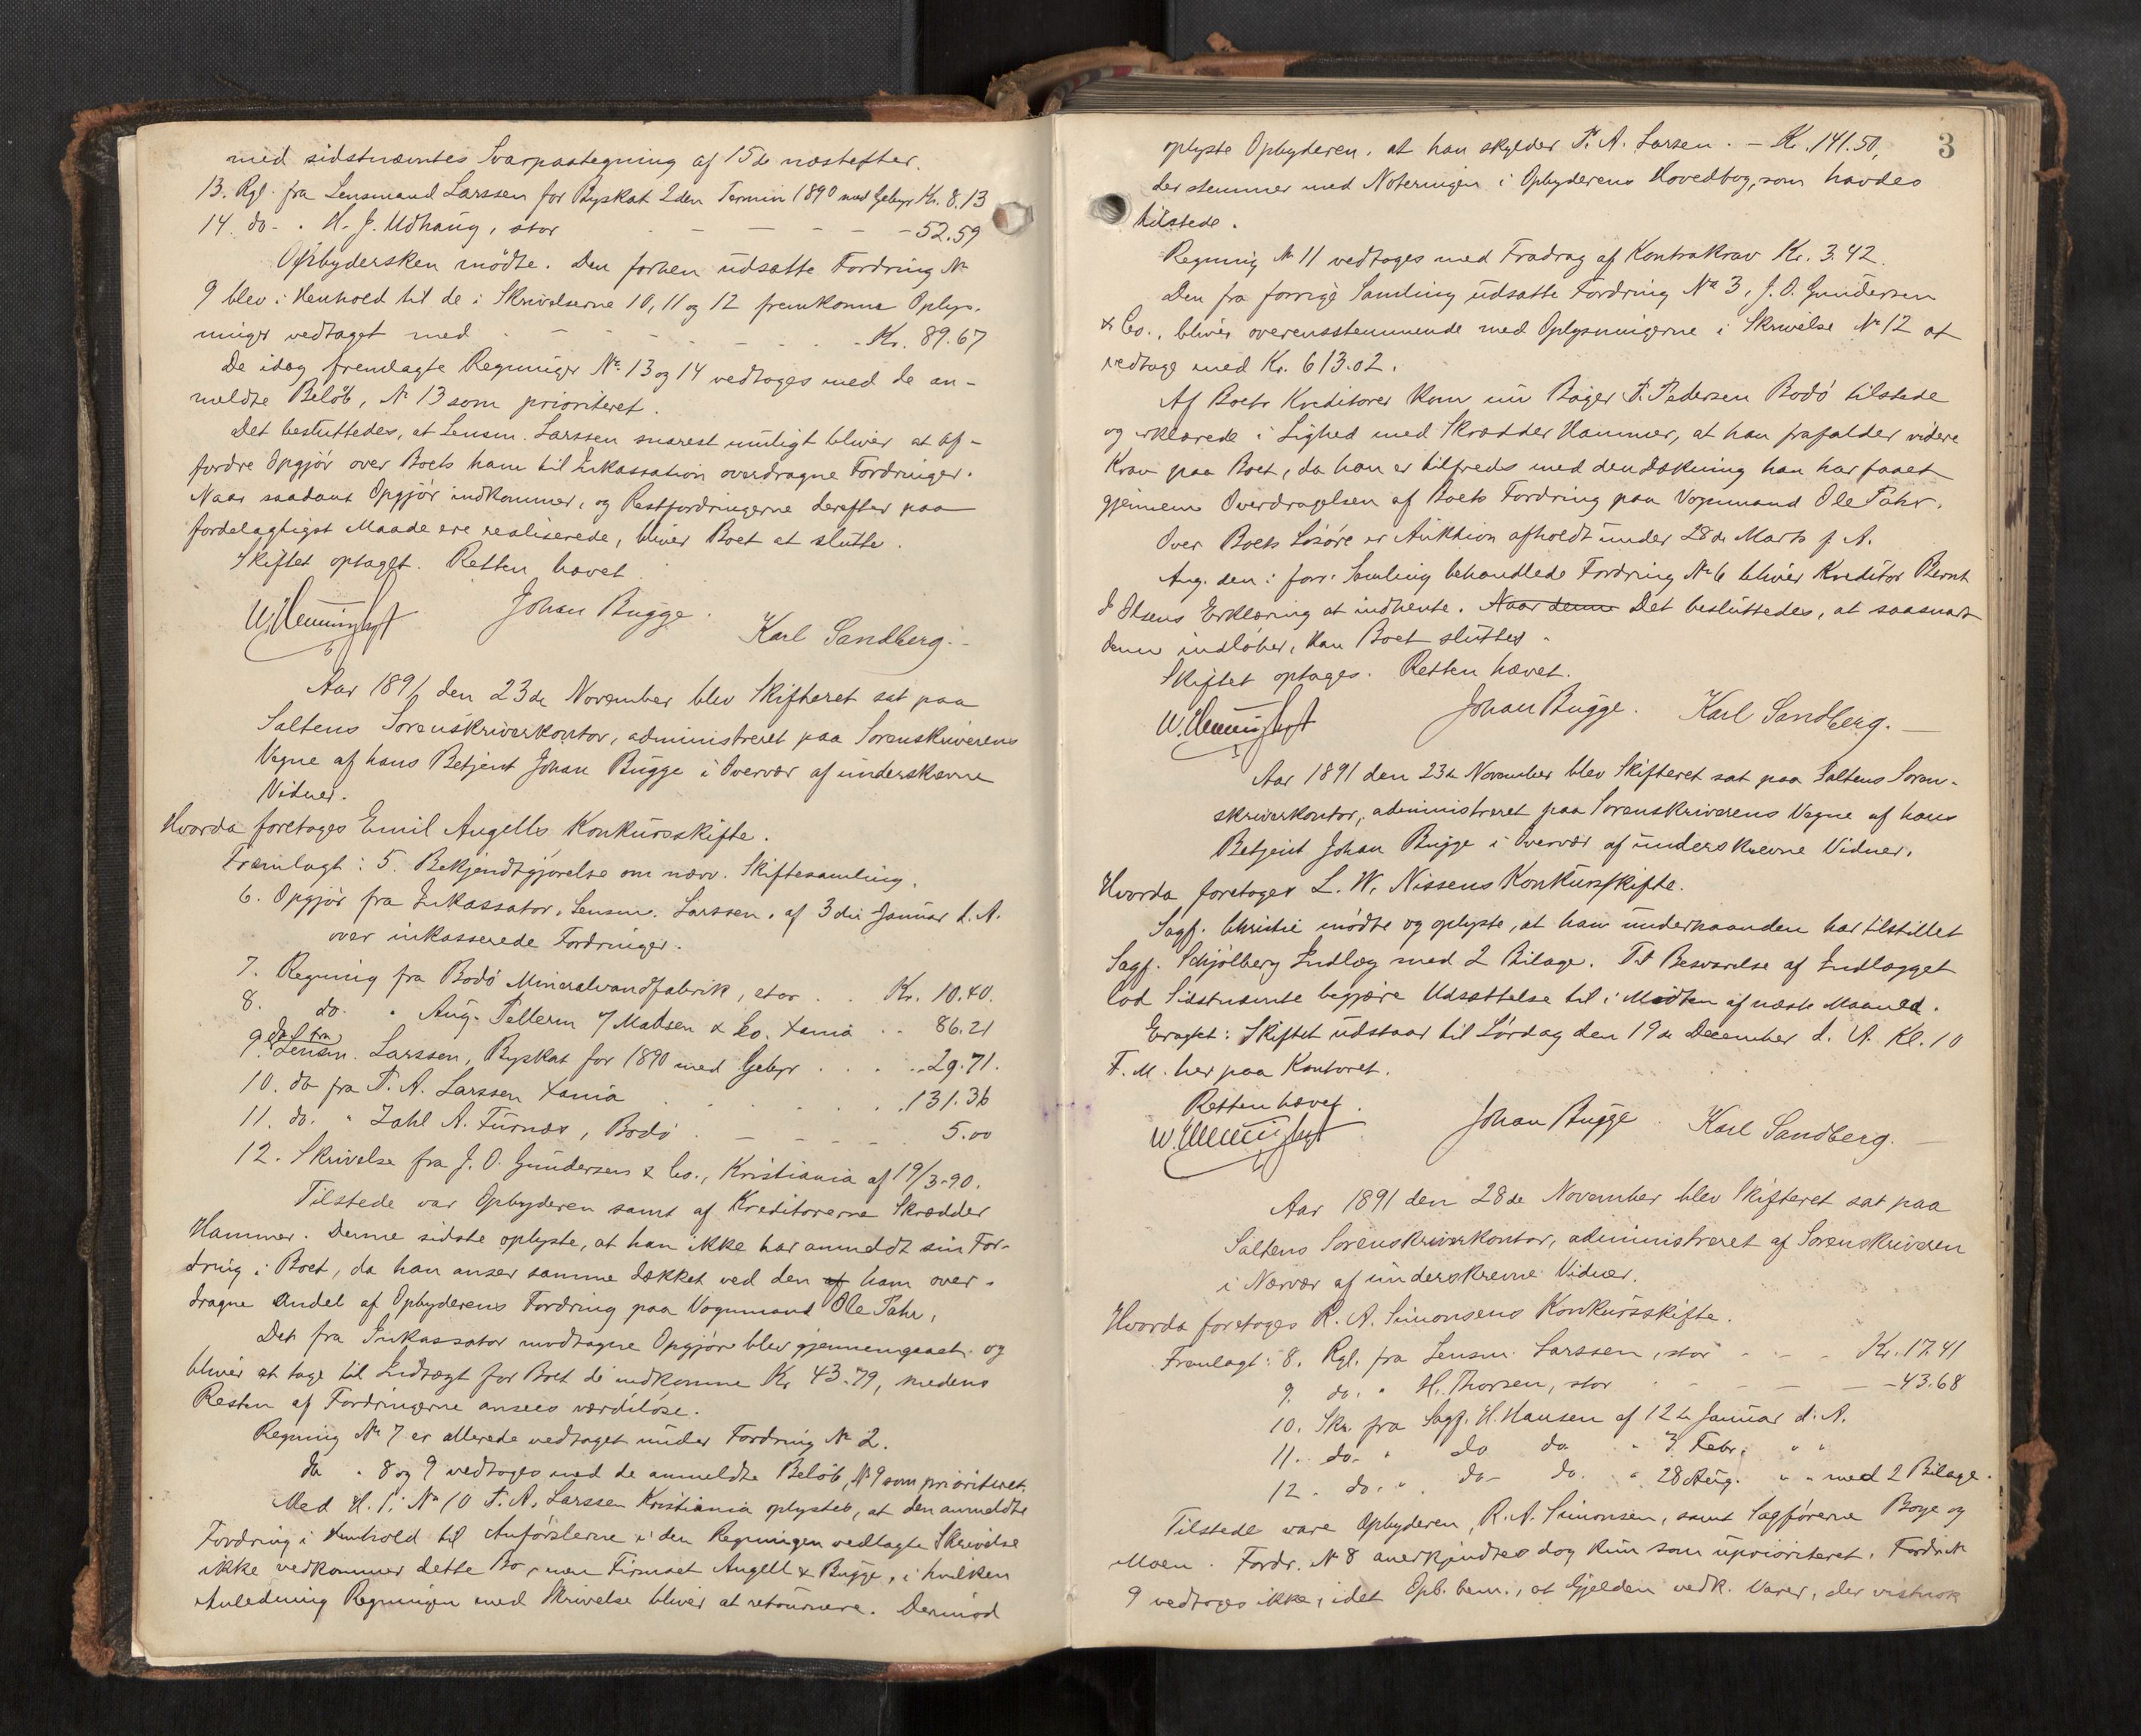 med sidstnævntes Svarpaategning af 15de næstefter.
13. Rgl. fra Lensmand Larssen for Byskat 2den Termin 1890 med Gebyr Kr. 8.13
14. do. " H. J. Udhaug, stor - - - - - 52.59
Opbydersken mödte. Den forhen udsatte Fordring No
9 blev i Henhold til de i Skrivelserne 10, 11 og 12 fremkomne Oplys-
ninger vedtaget med - - - - - Kr. 89.67
De idag fremlagte Regninger No. 13 og 14 vedtoges med de an-
meldte Beløb, No 13 som prioriteret.
Det besluttedes, at Lensm. Larssen snarest muligt bliver at af-
fordre Opgjör over Boets ham til Inkassation overdragne Fordringer.
Naar saadant Opgjör indkommer, og Restfordringerne derefter paa
fordelagtigst Maade ere realiserede, bliver Boet at slutte.
Skiftet optaget. Retten hævet
Johan Bugge.
Karl Sandberg.
Aar 1891 den 23de November blev Skifteret sat paa
Saltens Sorenskriverkontor, administreret paa Sorenskriverens
Vegne af hans Betjent Johan Bugge i Overvær af underskrevne
Vidner.
Hvorda foretoges Emil Angells Konkursskifte.
Fremlagt: 5. Bekjendtgjörelse om nærv. Skiftesamling.
6. Opgjör fra Inkassator, Lensm. Larssen, af 3die Januar d. A.
over inkasserede Fordringer.
7. Regning fra Bodö Mineralvandfabrik, stor . . Kr. 10.40.
8. do. " Aug. Pellerin / Madsen & Co. Xania . . 86.21
9. do fra Lensm. Larssen, Byskat for 1890 med Gebyr . . . . 29.71.
10. do fra P. A. Larssen Xania . . . . . . 131.36
11. do. " Zahl A. Furnæs, Bodö . - - - - 5.00
12. Skrivelse fra J. O. Gundersen & Co., Kristiania af 19/3-90.
Tilstede var Opbyderen samt af Kreditorerne Skrædder
Hammer. Denne sidste oplyste, at han ikke har anmeldt sin For-
dring i Boet, da han anser samme dækket ved den af ham over-
dragne Andel af Opbyderens Fordring paa Vognmand Ole Pahr.
Det fra Inkassator modtagne Opgjör blev gjennemgaaet og
bliver at tage til Indtægt for Boet de indkomne Kr 43.79, medens
Resten af Fordringerne ansees værdilöse.
Regning No 7 er allerede vedtaget under Fordring No 2.
do " 8 og 9 vedtoges med de anmeldte Beløb, No 9 som prioriteret.
Med H. t. No 10 P. A. Larssen Kristiania oplystes, at den anmeldte
Fordring i Henhold til Anförslerne i den Regningen vedlagte Skrivelse
ikke vedkommer dette Bo, men Firmaet Angell & Bugge, i hvilken
Anledning Regningen med Skrivelse bliver at retournere. Derimod
3
oplyste Opbyderen, at han skylder P. A. Larsen. - Kr. 141.50,
der stemmer med Noteringen i Opbyderens Hovedbog, som havdes
tilstede.
Regning No 11 vedtoges med Fradrag af Kontrakrav Kr. 3.42.
Den fra forrige Samling udsatte Fordring No 3, J. O. Gundersen
& Co., bliver overensstemmende med Oplysningerne i Skrivelse No 12 at
vedtage med Kr. 613.02.
Af Boets Kreditorer kom nu Bager P. Pedersen Bodö tilstede
og erklærede i Lighed med Skrædder Hammer, at han frafalder videre
Krav paa Boet, da han er tilfreds med den Dækning han har faaet
gjennem Overdragelsen af Boets Fordring paa Vognmand Ole Pahr.
Over Boets Lösöre er Auktion afholdt under 28de Marts f. A.
Ang. den i forr. Samling behandlede Fordring No 6 bliver Kreditor Bernt
J. Olsens Erklæring at indhente. Naar denne Det besluttedes, at saasnart
denne indlöber, kan Boet sluttes.
Skiftet optages. Retten hævet.
Johan Bugge. Karl Sandberg.
Aar 1891 den 23de November blev Skifteret sat paa Saltens Soren-
skriverkontor, administreret paa Sorenskriverens Vegne af hans
Betjent Johan Bugge i Overvær af underskrevne Vidner.
Hvorda foretoges L. W. Nissens Konkursskifte.
Sagf. Christie mödte og oplyste, at han underhaanden har tilstillet
Sagf. Schjölberg Indlæg med 2 Bilage. Til Besvarelse af Indlægget
lod Sidstnævnte begjære Udsættelse til i Midten af næste Maaned.
Eragtet: Skiftet udstaar til Lördag den 19de December d. A. Kl. 10
F. M. her paa Kontoret.
Retten hævet.
Johan Bugge Karl Sandberg.
Aar 1891 den 28de November blev Skifteret sat paa
Saltens Sorenskriverkontor, administreret af Sorenskriveren
i Nærvær af underskrevne Vidner.
Hvorda foretoges R. A. Simonsens Konkursskifte.
Fremlagt: 8. Rgl. fra Lensm. Larssen, stor - - - Kr. 17.41
9. do. " H. Thorsen, stor - - - - - 43.68
10. Skr. fra Sagf. H. Hansen af 12te Januar d. A.
11. do. " do do " 3 Febr. " "
12. do. " do do. " 28 Aug. " " med 2 Bilage.
Tilstede vare Opbyderen, R. A. Simonsen, samt Sagförerne Boye og
Moen. Fordr. No 8 anerkjendtes dog kun som uprioriteret. Fordr. No
9 vedtoges ikke, idet Opb. bem., at Gjelden vedk. Varer, der vistnok